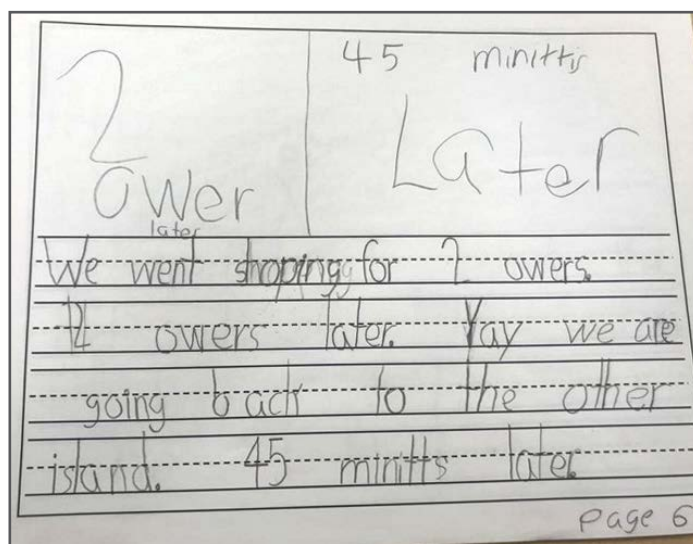 2
ower
later
45 minittis
Later
We went shoping for 2 owers.
owers later. Yay we are
going back to the other
island. 45 minitts later.
page 6